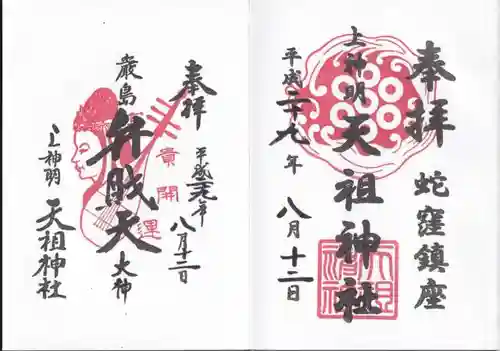 奉拝
蛇窪鎮座
上神明
天祖神社
平成二十九年
八月十二日
奉拝
平成二九年
八月十二日
開運
厳島
弁財天
大神
上神明
天祖神社